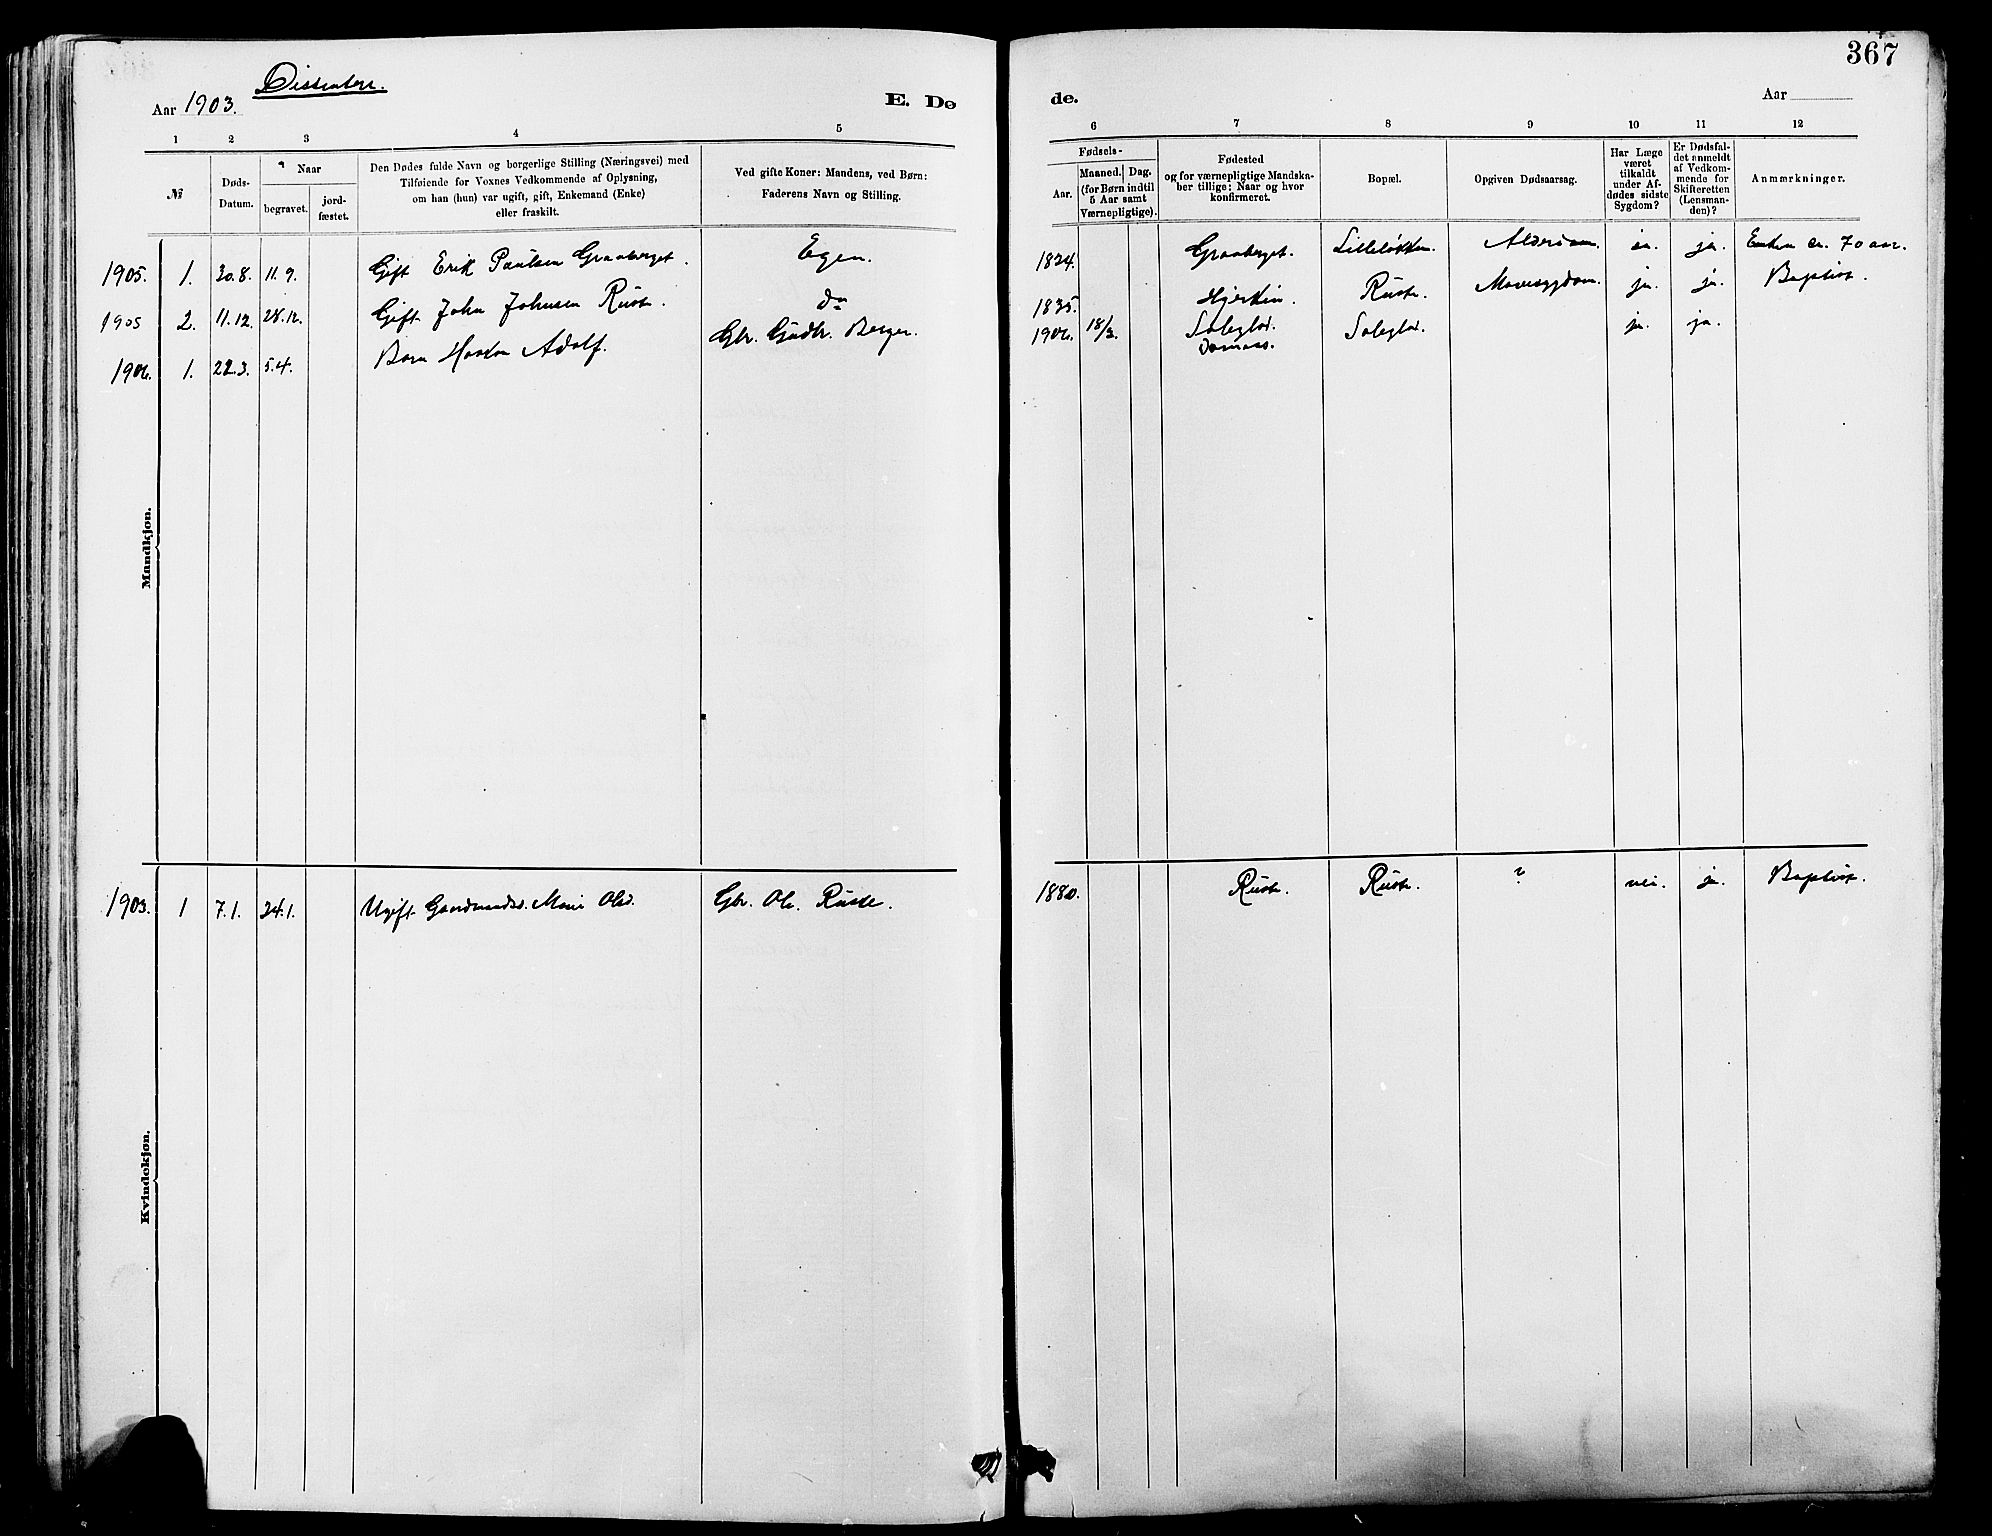 367
Dissentere.
Aar 1903.
E. Dø
de.
Aar
1 2 3 4 5
6 7 8 9 10 11 12
№
Døds-Datum.
Naar
begravet.
jord-
fæstet.
Den Dødes fulde Navn og borgerlige Stilling (Næringsvei) med
Tilføiende for Voxnes Vedkommende af Oplysning,
om han (hun) var ugift, gift, Enkemand (Enke)
eller fraskilt.
Ved gifte Koner: Mandens, ved Børn:
Faderens Navn og Stilling.
Fødsels-
Aar.
Maaned. Dag.
(for Børn indtil
5 Aar samt
Værnepligtige).
Fødested
og for værnepligtige Mandska-
ber tillige: Naar og hvor
konfirmeret.
Bopæl.
Opgiven Dødsaarsag.
Har Læge
været
tilkaldt
under Af-
dødes sidste
Sygdom?
Er Dødsfal-
det anmeldt
af Vedkom-
mende for
Skifteretten
(Lensman-
den)?
Anmærkninger.
Mandkjøn.
1905. 1. 30.8. 11.9. Gift Erik Paulsen Graaberget. Egen. 1824. Graaberget. Lilleløkken. ja. ja. 70 aar.
1905 2. 11.12. 28.12. Gift John Johnsen Ruste. do 1835. Hjerkin. Ruste. Mavesygdom. ja. ja. Baptist.
1906. 1. 22.3. 5.4. Barn Haakon Adolf. Gbr. Gudbr. Berger. 1906. 18/3. Soleglad. Soleglad. ja. ja.
Domaas.
Kvindekjøn.
1903. 1 7.1. 24.1. Ugift Gaardmandsd. Marie Olsd. Gbr. Ole Ruste. 1880. Ruste. Ruste. ? nei. ja. Baptist.